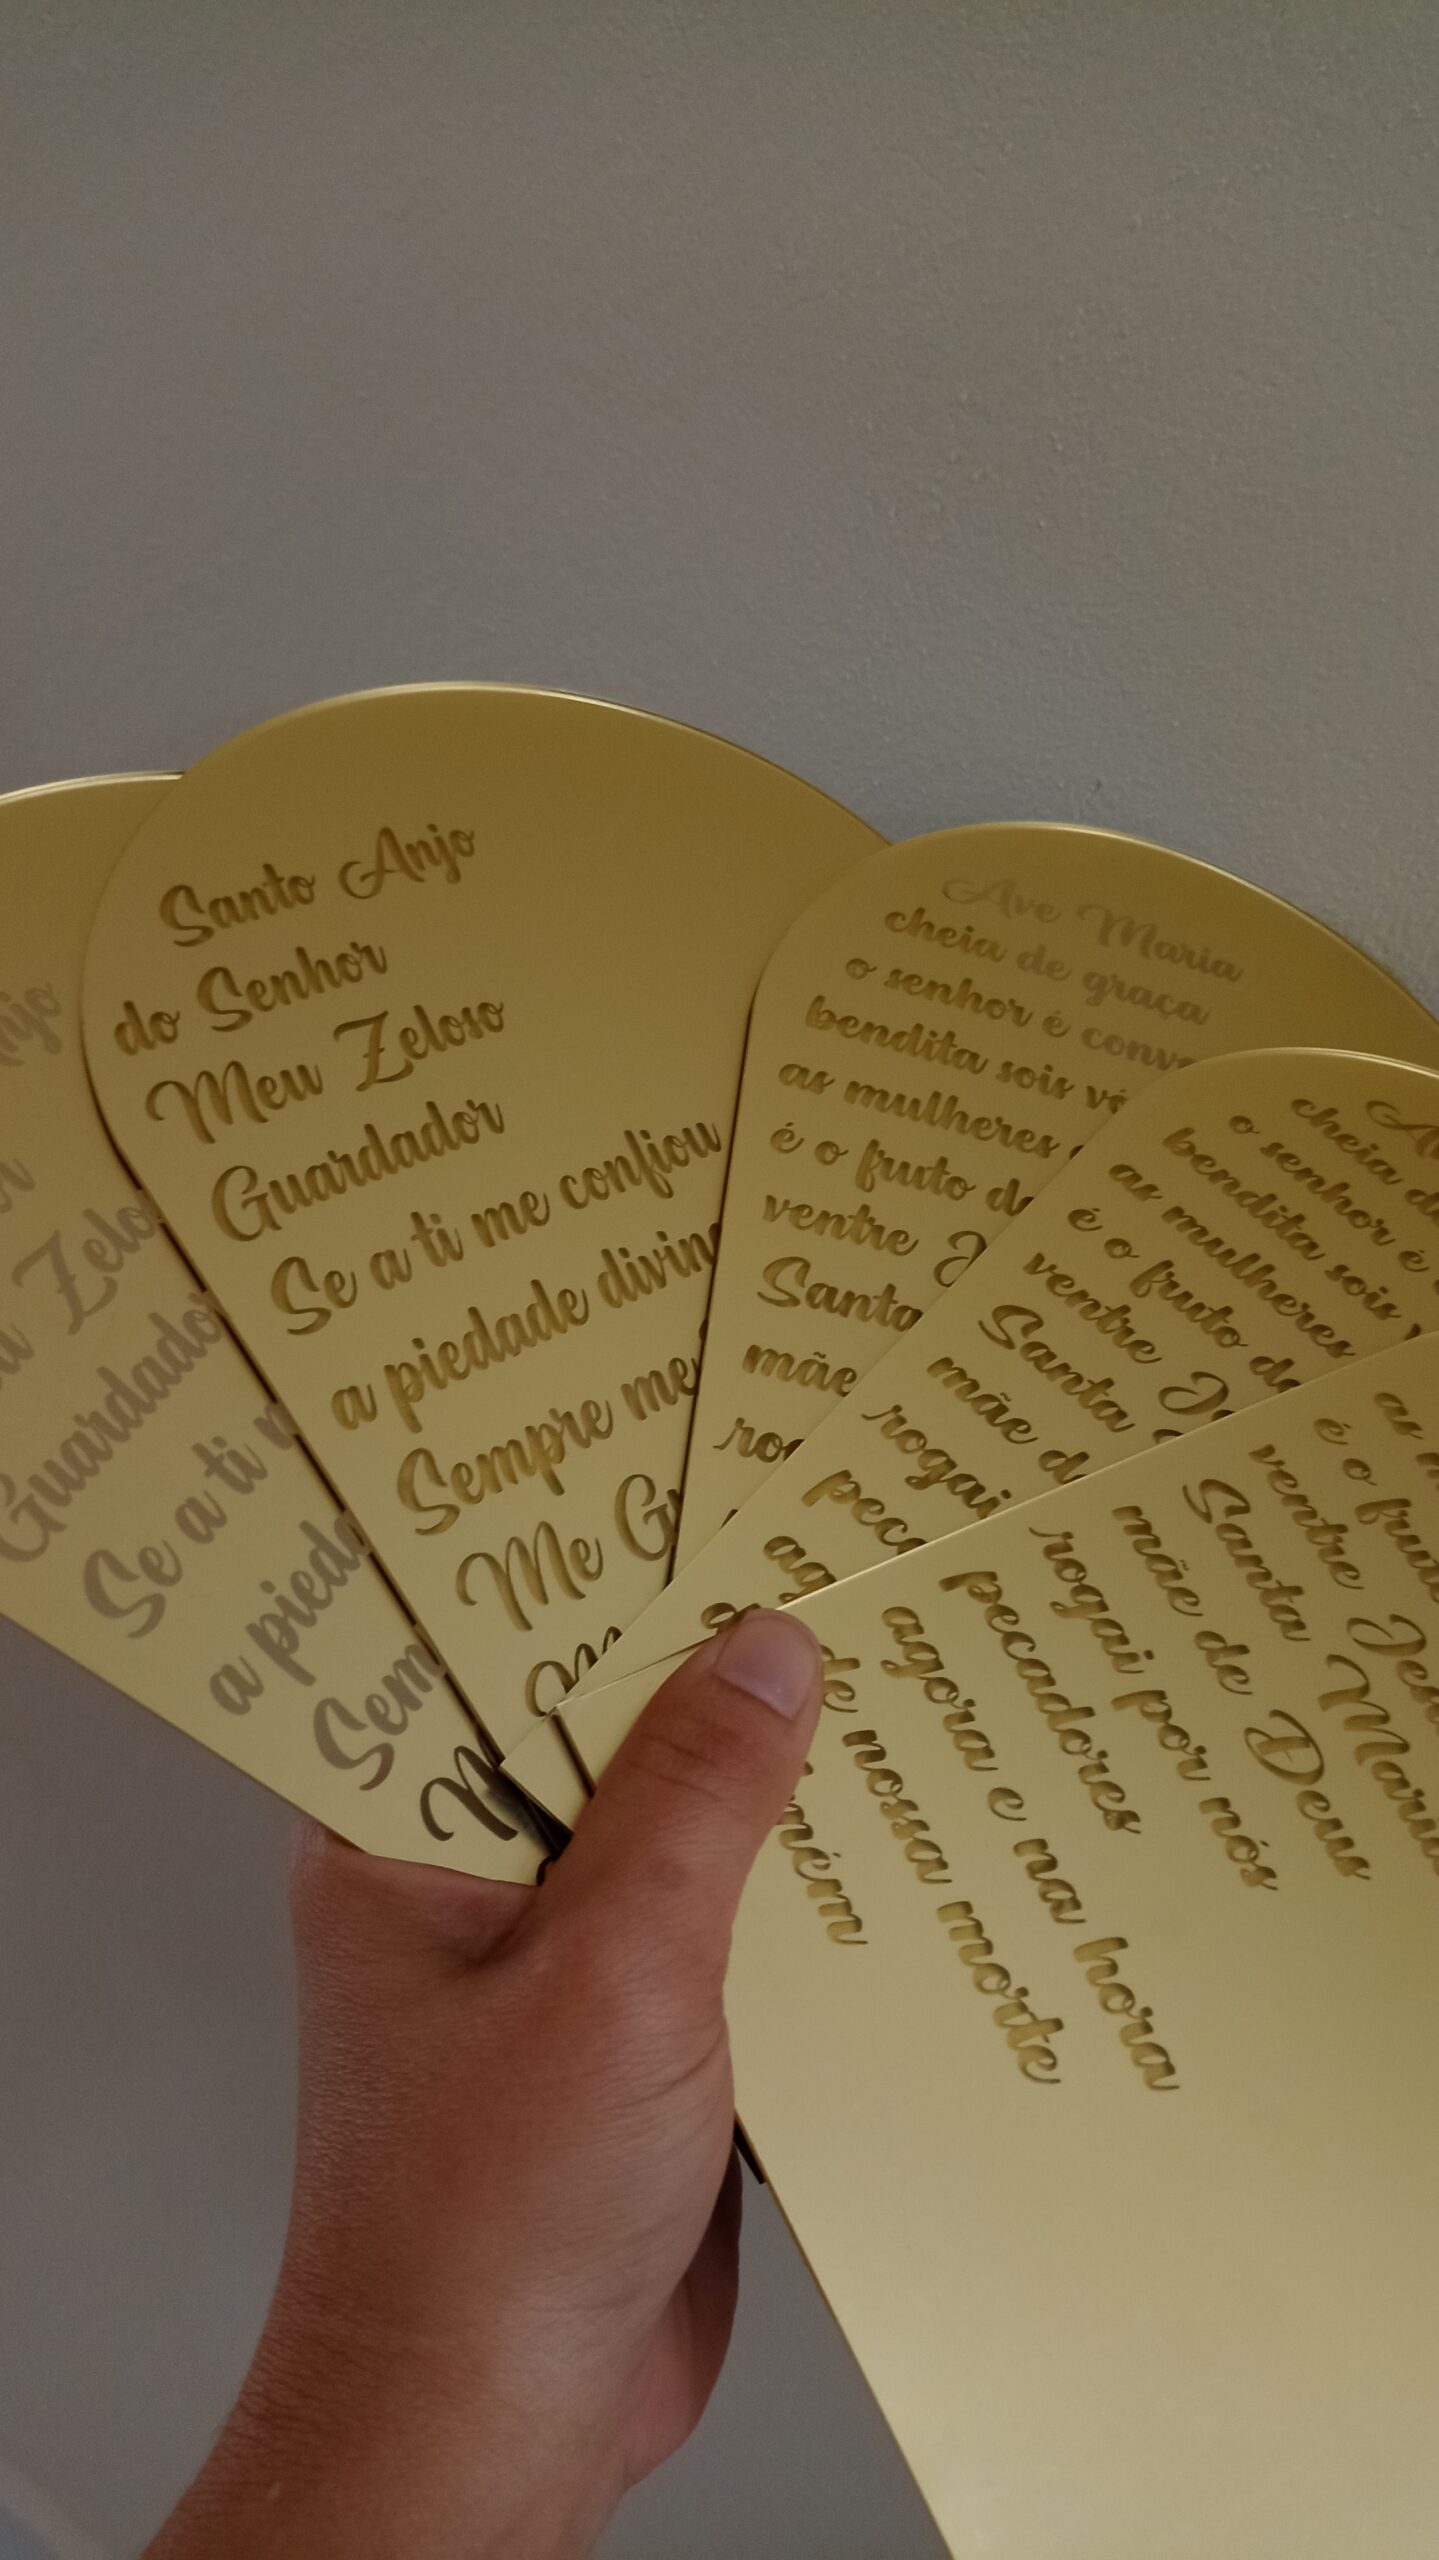 Anjo
Zelo
Guardador
Se a ti
a pieda
Sem
Santo Anjo
do Senhor
Meu Zeloso
Guardador
Se a ti me confiou
a piedade divina
Sempre me
Me Gu
Ave Maria
cheia de graça
o senhor é conv
bendita sois vó
as mulheres
é o fruto do
ventre J
Santa
mãe
rog
cheia d
o senhor é
bendita sois v
as mulheres
é o fruto do
ventre Je
Santa
mãe d
rogai
peca
ag
as m
é o frut
ventre Jes
Santa Maria
mãe de Deus
rogai por nós
pecadores
agora e na hora
de nossa morte
mém